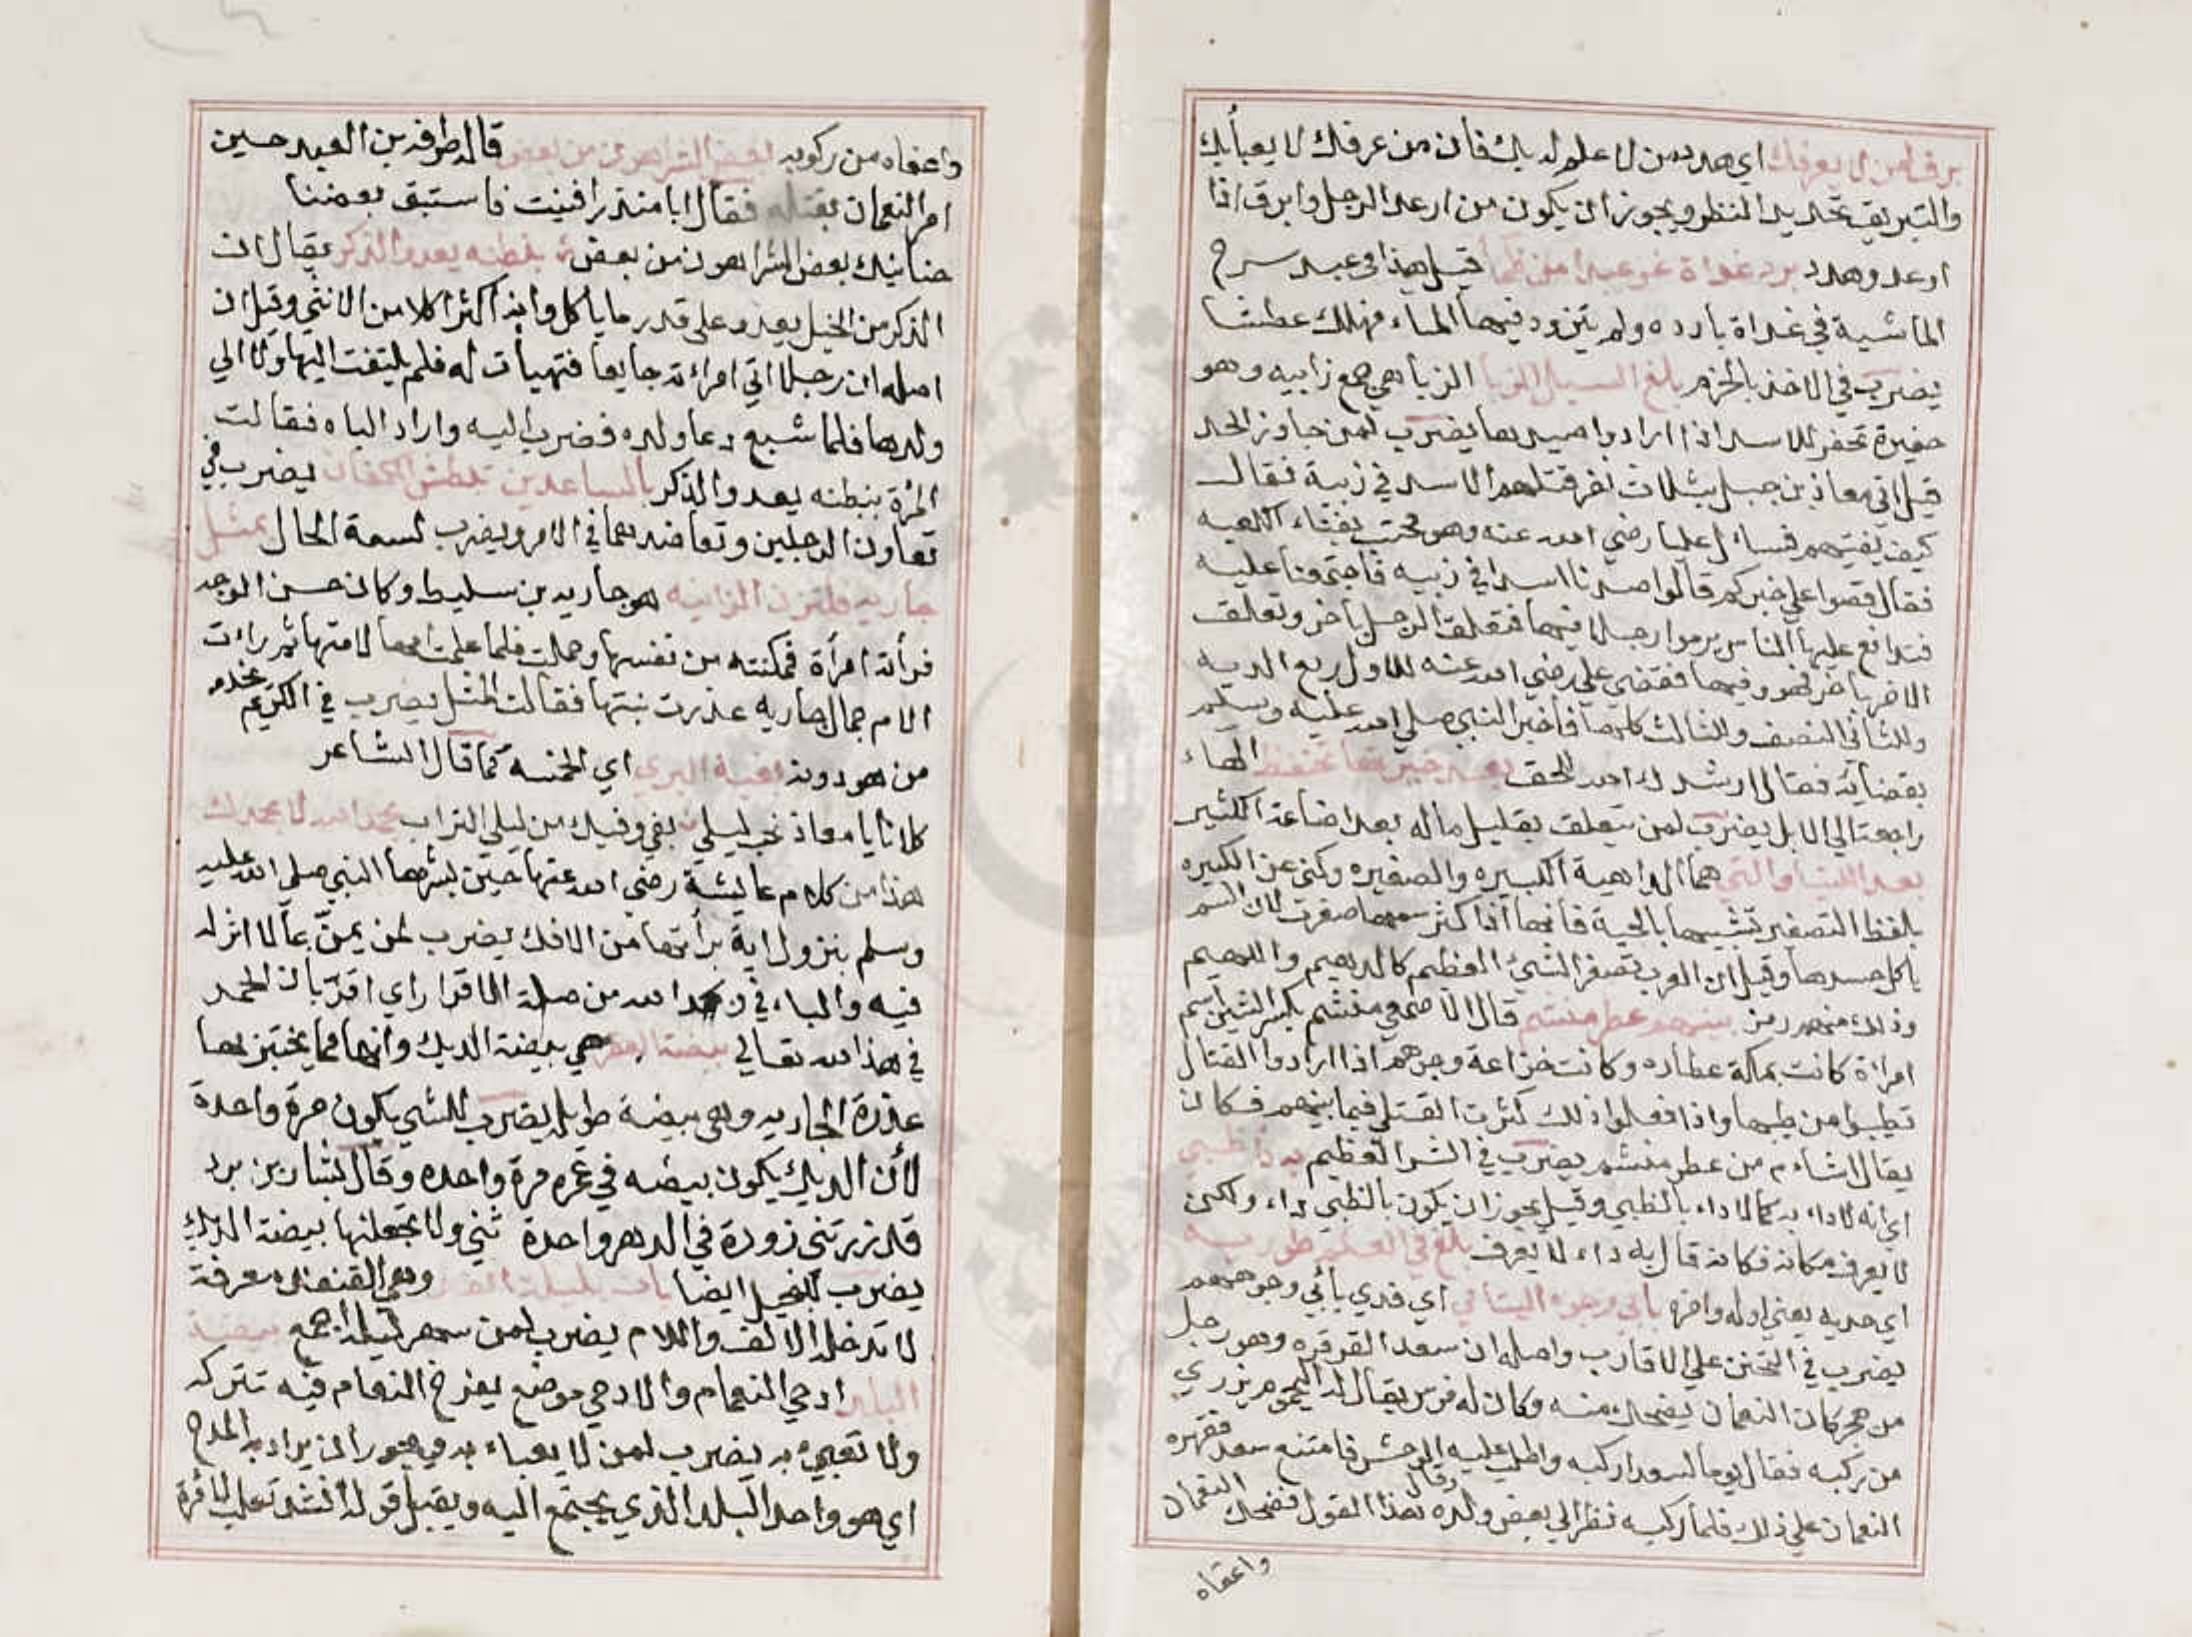 برق لمن لا يعرفك اي هدد من لا علم له بك فان من عرفك لا يعبأ بك
والتبريق تحديد النظر ويجوز ان يكون من ارعد الرجل وابرق اذا
اوعد وهدد برد غداة غر عبدا من ظمأ قيل هذا في عبد سرح
الماشية في غداة بارده ولم يتزود فيها الماء فهلك عطشا
يضرب في الاخذ بالحزم بلغ السيل الزبا الزبا هي جمع زابيه وهو
حفيرة تحفر للاسد اذا ارادوا صيدها يضرب لمن جاوز الحد
قيل اتي معاذ بن جبل بثلاث نفر قتلهم الاسد في زبية فقال
كيف يفتيهم فسائل عليا رضي الله عنه وهو محتب بفناء الكعبه
فقال قصوا علي خبركم قالوا صدنا اسدا في زبيه فاجتمعنا عليه
فتدافع عليها الناس يرموا رجلا فيها فتعلق الرجل باخر وتعلق
الاخر باخر فهووا فيها فقضي علي رضي الله عنه للاول ربع الديه
وللثاني النصف وللثالث كلها فاخبر النبي صلي الله عليه وسلم
بقضائه فقال ارشدك الله للحق بعد خيرتها تحتفظ الهاء
راجعة الي الابل يضرب لمن يتعلق بقليل ماله بعد اضاعة الكثير
بعد اللتيا والتي هما الداهية الكبيره والصغيره وكني عن الكبيره
بلفظ التصغير تشبيها بالحية فانها اذا كثر سمها صغرت لان السم
ياكل جسدها وقيل ان العرب تصغر الشئ العظيم كالدهيم واللهيم
وذلك منهم رمز بينهم عطر منشم قال الاصمعي منشم بكسر الشين اسم
امراة كانت بمكة عطاره وكانت خزاعة وجرهم اذا ارادوا القتال
تطيبوا من طيبها واذا فعلوا ذلك كثرت القتلي فيما بينهم فكان
يقال اشاءم من عطر منشم يضرب في الشر العظيم به داء ظبي
اي انه لا داء به كما لا داء بالظبي وقيل يجوز ان يكون بالظبي داء ولكن
لا يعرف مكانه فكانه قال به داء لا يعرف بلغ في العلم طوريه
اي حديه يعني اوله واخره بابي وجوه اليتامي اي فدي بابي وجوههم
يضرب في التحنن علي الاقارب واصله ان سعد القرقره وهو رجل
من هجر كان النعمان يضحك منه وكان له فرس يقال له اليحموم يردي
من ركبه فقال يوما لسعد اركبه واطلب عليه الوحش فامتنع سعد فقهره
النعمان علي ذلك فلما ركبه نظر الي بعض ولده وقال هذا القول فضحك النعمان
واعفاه
واعفاه من ركوبه بعض الشر اهون من بعض قاله طرفه بن العبد حسين
امر النعمان بقتله فقال ابا منذر افنيت فاستبق بعضنا
حنانيك بعض الشر اهون من بعض بطنه يعدو الذكر يقال ان
الذكر من الخيل يعدو علي قدر ما ياكل وانه اكثر اكلا من الانثي وقيل ان
اصله ان رجلا اتي امراته جايعا فتهيأت له فلم يلتفت اليها ولا الي
ولدها فلما شبع دعا ولده فضرب اليه واراد الباه فقالت
المرأة ببطنه يعدو الذكر بالساعدين تبطش الكفان يضرب في
تعاون الرجلين وتعاضدهما في الامر ويضرب لسعة الحال بمثل
جاريه فلتزن الزانيه هو جاريه بن سليط وكان حسن الوجه
فرأته امرأة فمكنته من نفسها وحملت فلما علمت امها لامتها ثم رات
الام جمال جاريه عذرت بنتها فقالت المثل يضرب في الكريم يخدم
من هو دونه بفيه البري اي الخيبه كما قال الشاعر
كلانا يا معاذ نحب ليلي بفي وفيك من ليلي التراب بحمد الله لا بحمدك
هذا من كلام عايشة رضي الله عنها حين بشرها النبي صلي الله عليه
وسلم بنزول اية برأتها من الافك يضرب لمن يمن بما لا اثر له
فيه والباء في بحمد الله من صلة الاقرار اي اقر بان الحمد
في هذا لله تعالي بيضة العقر هي بيضة الديك وانها مما يختبر بها
عذرة الجاريه وهي بيضة طويله يضرب للشي يكون مرة واحدة
لأن الديك يكون بيضه في عمره مرة واحده وقال بشار بن برد
قد زرتني زورة في الدهر واحدة ثني ولا تجعلنها بيضة الديك
يضرب للبخيل ايضا بات بليلة انقد وهي القنفذ معرفة
لا تدخله الالف واللام يضرب لمن سهر ليله اجمع بيضة
البلد ادحي النعام والادحي موضع يفرخ النعام فيه تتركه
ولا تعبئ به يضرب لمن لا يعباء به ويجوز ان يراد به المدح
اي هو واحد البلد الذي يجتمع اليه ويقبل قوله انشد ثعلب لامرة